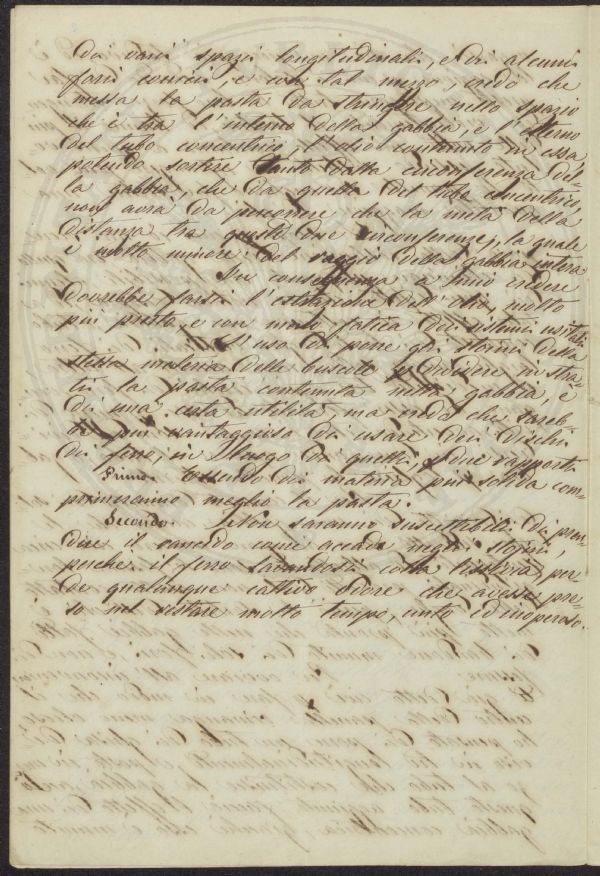 da varii spazi longitudinali, e di alcuni
fori conici, e con tal mezzo, credo che
messa la pasta da stringere nello spazio
che è tra l'interno della gabbia, e l'esterno
del tubo concentrico l'olio contenuto in essa
potendo sortire tanto dalla circonferenza del-
la gabbia, che da quella del tubo concentrico,
non avrà da percorrere che la metà della
distanza tra queste due circonferenze, la quale
è molto minore del raggio della gabbia intera
In conseguenza a mio credere
dovrebbe farsi l'estrazione dell'olio molto
più presto, e con meno fatica dei sistemi usitati
L'uso di porre gli storini della
stessa materia delle buscole per dividere in stra-
ti la pasta contenuta nella gabbia, è
di una certa utilità, ma credo che sareb-
be più vantaggioso di usare dei dischi
di ferro, in luogo di quelli, per due rapporti
Primo. Essendo di materia più solida com-
primeranno meglio la pasta.
Secondo. Non saranno suscettibili di pren-
dere il rancido come accade negli storini,
perchè il ferro lavandosi colla liscivia, per-
de qualunque cattivo odore che avesse pre-
so nel restare molto tempo, unto ed inoperoso.